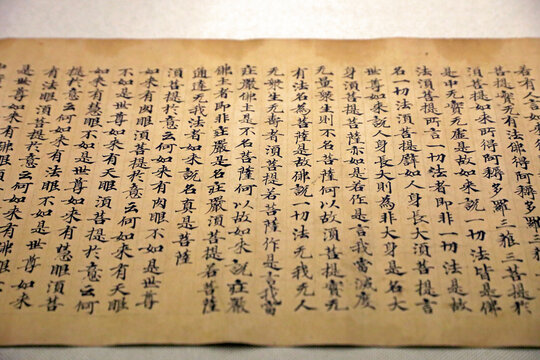 若有人言如
菩提實无有法佛得阿耨多羅三藐三菩提
須菩提如來所得阿耨多羅三藐三菩提於
是中无實无虛是故如來說一切法皆是佛
法須菩提所言一切法者即非一切法是故
名一切法須菩提譬如人身長大須菩提言
世尊如來說人身長大則為非大身是名大
身須菩提菩薩亦如是若作是言我當滅度
无量眾生則不名菩薩何以故須菩提實无
有法名為菩薩是故佛說一切法无我无人
无眾生无壽者須菩提若菩薩作是言我當
莊嚴佛土是不名菩薩何以故如來說莊嚴
佛土者即非莊嚴是名莊嚴須菩提若菩薩
通達无我法者如來說名真是菩薩
須菩提於意云何如來有肉眼不如是世尊
如來有肉眼須菩提於意云何如來有天眼
不如是世尊如來有天眼須菩提於意云何
如來有慧眼不如是世尊如來有慧眼須菩
提於意云何如來有法眼不如是世尊如來
有法眼須菩提於意云何如來
是世尊如來